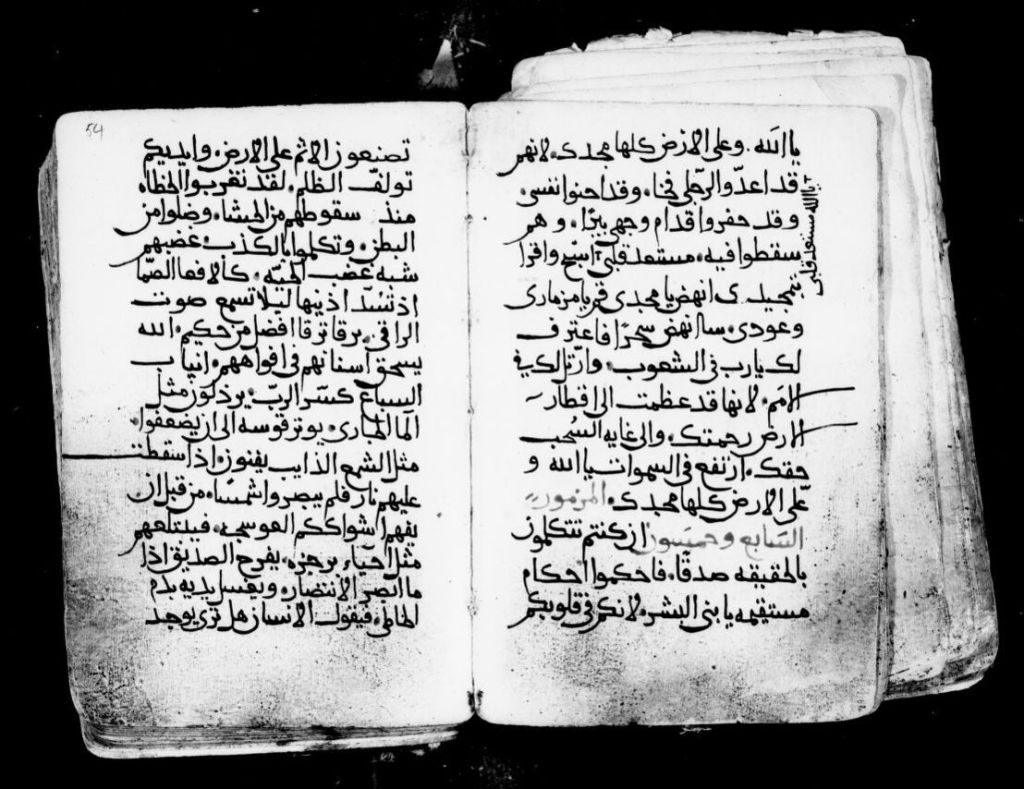 يا الله. وعلى الارض كلها مجدك. لانهم
قد اعدّوا لرجلي فخا. وقد احنوا نفسي.
وقد حفروا قدام وجهي بيرًا. وهم
سقطوا فيه. مستعد قلبي اسبّح واقرا
يا الله مستعد قلبي
بتمجيدك انهض يا مجدي قم يا مزماري
وعودي. سانهض سحرًا فاعترف
لك يا رب في الشعوب. وارتل لك في
الامم. لانها قد عظمت الى اقطار
الارض رحمتك. والى غايه السُحب
حقك. ارتفع في السموات يا الله و
على الارض كلها مجدك. المزمور
السابع وخمسون ان كنتم تتكلمون
بالحقيقه صدقًا. فاحكموا احكام
مستقيمه يا بني البشر. لانكم في قلوبكم
54
تصنعون الاثم على الارض. وايديكم
تولف الظلم. لقد تغربوا الخطاه
منذ سقوطهم من الحشا. وضلوا من
البطن. وتكلموا بالكذب غضبهم
شبه غضب الحيّه. كالافعا الصمّا
اذ تسّد اذنيها ليلا تسمع صوت
الراقي. يرقا ترقا افضل من حكيم. الله
يسحق اسنانهم في افواههم. انياب
السباع كسر الربّ. يرذلون مثل
الما الجاري. يوتر قوسه الى ان يضعفوا.
مثل الشمع الذايب يفنون. اذا سقطت
عليهم نار فلم يبصروا شمسًا. من قبل ان
يفهم اشواككم العوسجه. فيبتلعهم
مثل احيّاء برجزه. يفرح الصديق اذا
ما ابصر الانتصار. ويغسل يديه بدم
الخاطي. فيقول الانسان هل ترى يوجد